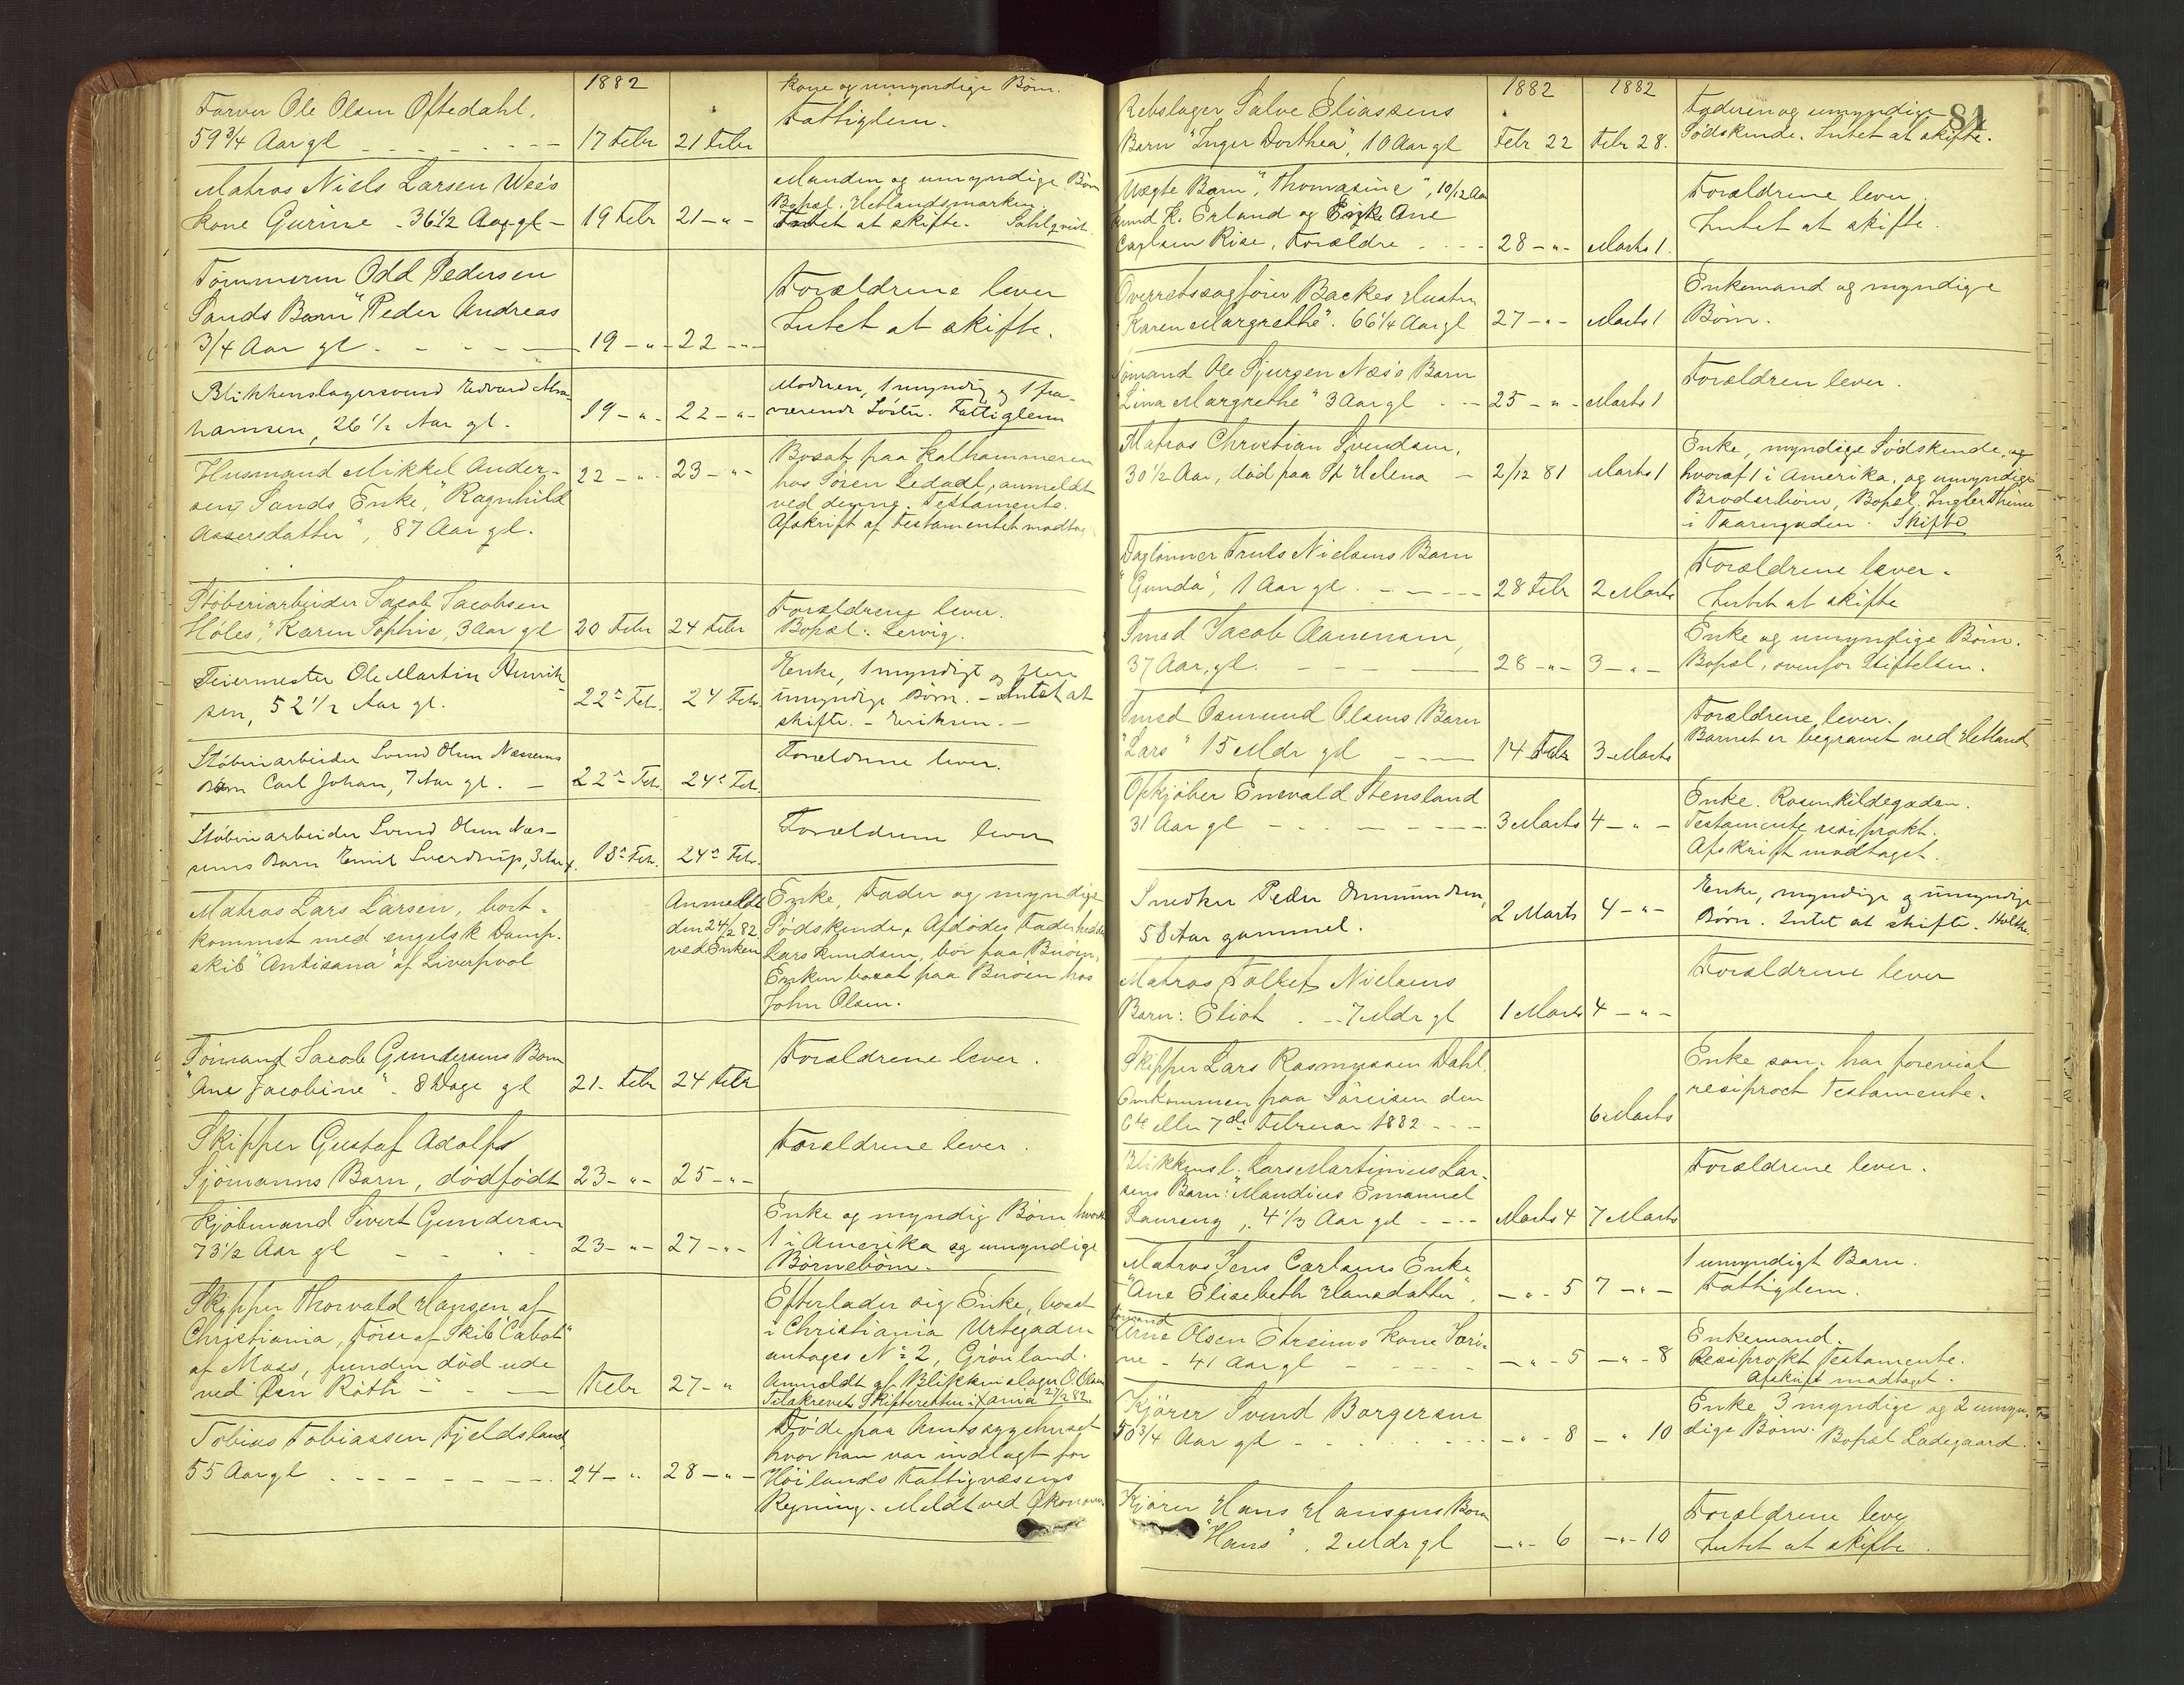 1882
Farver Ole Olsen Oftedahl,
59 3/4 Aar gl
17 Febr
21 Febr
kone og umyndige Børn.
Fattiglem.
Matros Niels Larsen Wee's
kone Gurine - 36 1/2 Aar gl -
19 Febr
21 - " -
Manden og umyndige Børn
Bopæl. Hetlandsmarken.
Intet at skifte. Sahlqvist.
Tømmerm Odd Pedersen
Sands Barn "Peder Andreas
3/4 Aar gl.
19 - " -
22 - " -
Forældrene lever
Intet at skifte.
Blikkenslagersvend Edvard Abra-
hamsen, 26 1/2 Aar gl.
19 - " -
22 - " -
Moderen, 1 myndig og 1 fra-
værende Søster. Fattiglem
Husmand Mikkel Ander-
sen Sands Enke, "Ragnhild
Aasersdatter", 87 Aar gl.
22 - " -
23 - " -
Bosat paa Kalhammeren
hos Sören Ledadt, anmeldt
ved denne. Testamente.
Afskrift af Testamentet modtag
Støberiarbeider Jacob Jacobsen
Høles, "Karen Sophie, 3 Aar gl
20 Febr
24 Febr
Forældrene lever.
Bopæl: Lervig.
Feiermester Ole Martin Henrik-
sen, 52 1/2 Aar gl.
22de Feb.
24 Feb.
Enke, 1 myndigt og flere
umyndige Børn. - Intet at
skifte. - Eriksen. -
Støberiarbeider Svend Olsen Næssens
Barn Carl Johan, 7 Aar gl. -
22de Feb.
24de Feb.
Forældrene lever.
Støberiarbeider Svend Olsen Næs-
sens Barn Emil Sverdrup, 3 Aar g.
18de Feb.
24de Feb.
Forældrene lever
Matros Lars Larsen, bort-
kommet med engelsk Damp-
skib "Antisana" af Liverpool
Anmeldt
den 24/2 82
ved Enken
Enke, Fader og myndige
Sødskende. Afdødes Fader hedder
Lars Knudsen, bor paa Buøen,
Enken bosat paa Buøen hos
John Olsen.
Tømand Jacob Gundersens Barn
"Ane Jacobine" - 8 Dage gl
21 - Febr
24 Febr
Forældrene lever.
Skipper Gustaf Adolfs
Sjömanns Barn, dödfødt
23 - " -
25 - " -
Forældrene lever.
Kjöbmand Sivert Gundersen
73 1/2 Aar gl
23 - " -
27 - " -
Enke og myndig Børn, hvoraf
1 i Amerika og umyndige
Børnebørn.
Skipper Thorvald Hansen af
Christiania, Fører af Skib "Cabot"
af Moss, funden død ude
ved Øen Rött
Febr
27 - "
Efterlader sig Enke, bosat
i Christiania Urtegaden
antages No 2, Grönland.
Anmeldt af Blikkenslager O. Olsen
Tilskrevet Skifteretten i Xania 27/2 82
Tobias Tobiassen Fjeldsland,
55 Aar gl
24 - "
28 - " -
Døde paa Amtssygehuset
hvor han var indlagt for
Høilands Fattigvæsens
Regning. Meldt ved Økonomen
84
1882
1882
Rebslager Salve Eliassens
Barn "Inger Dorthea", 10 Aar gl
Febr 22
Febr 28.
Faderen og umyndige
Sødskende. Intet at skifte.
Uægte Barn, "Thomasine", 10/12 Aa
Knud K. Erland og Enke Ane
Carlsen Rise, Forældre
28 - " -
Marts 1.
Forældrene lever
Intet at skifte.
Overretssagfører Backes Hustru
"Karen Margrethe". 66 1/4 Aar gl
27 - " -
Marts 1
Enkemand og myndige
Børn.
Tømand Ole Sjursen Næs's Barn
"Lina Margrethe" 3 Aar gl
25 - " -
Marts 1
Forældren lever.
Matros Christian Svendsen,
30 1/2 Aar, død paa St Helena -
2/12 81
Marts 1
Enke, myndige Sødskende, og
hvoraf 1 i Amerika, og umyndige
Broderbørn, Bopæl. Ingler Thime
i Taarngaden. Skifte
Daglønner Truls Nielsens Barn
"Gunda", 1 Aar gl.
28 Febr
2 Marts
Forældrene lever.
Intet at skifte
Smed Jacob Aanensen,
37 Aar gl.
28 - " -
3 - " -
Enke og umyndige Børn.
Bopæl, ovenfor Stiftelsen.
Smed Osmund Olsens Barn
"Lars" 15 Mdr gl
14 Febr
3 Marts
Forældrene lever.
Barnet er begravet ved Hetland
Opkjøber Enevald Stensland
31 Aar gl
3 Marts
4 - " -
Enke. Rosenkildegaden.
Testamente resiprokt.
Afskrift modtaget.
Snedker Peder Ommundsen,
58 Aar gammel.
2 Marts
4 - " -
Enke, myndige og umyndige
Børn. Intet at skifte. Holthe.
Matros Tolket Nielsens
Barn: Eliot . - 7 Mdr gl
1 Marts
4 - " -
Forældrene lever
Skipper Lars Rasmussen Dahl.
Omkommen paa Søreisen den
6te eller 7de Februar 1882
6 Marts
Enke som har forevist
resiproct Testamente.
Blikkensl. Lars Martinius Lar-
sens Barn: "Mandius Emanuel
Laureng", 4 1/3 Aar gl
Marts 4
7 Marts
Forældrene lever.
Matros Jens Carlsens Enke
"Ane Elisebeth Hansdatter".
- " - 5
7 - " -
1 umyndigt Barn.
Fattiglem.
Tømand
Arne Olsen Etreims kone Seri-
ne - 41 Aar gl
- " - 5
- " - 8
Enkemand.
Resiprokt Testamente.
Afskrift modtaget.
Kjører Svend Borgersen
50 3/4 Aar gl
- " - 8
- " 10
Enke 3 myndige og 2 umyn-
dige Børn. Bopæl Ladegaard.
Kjører Hans Hansens Barn
"Hans". 2 Mdr gl
- " - 6
- " - 10
Forældrene lever
Intet at skifte.